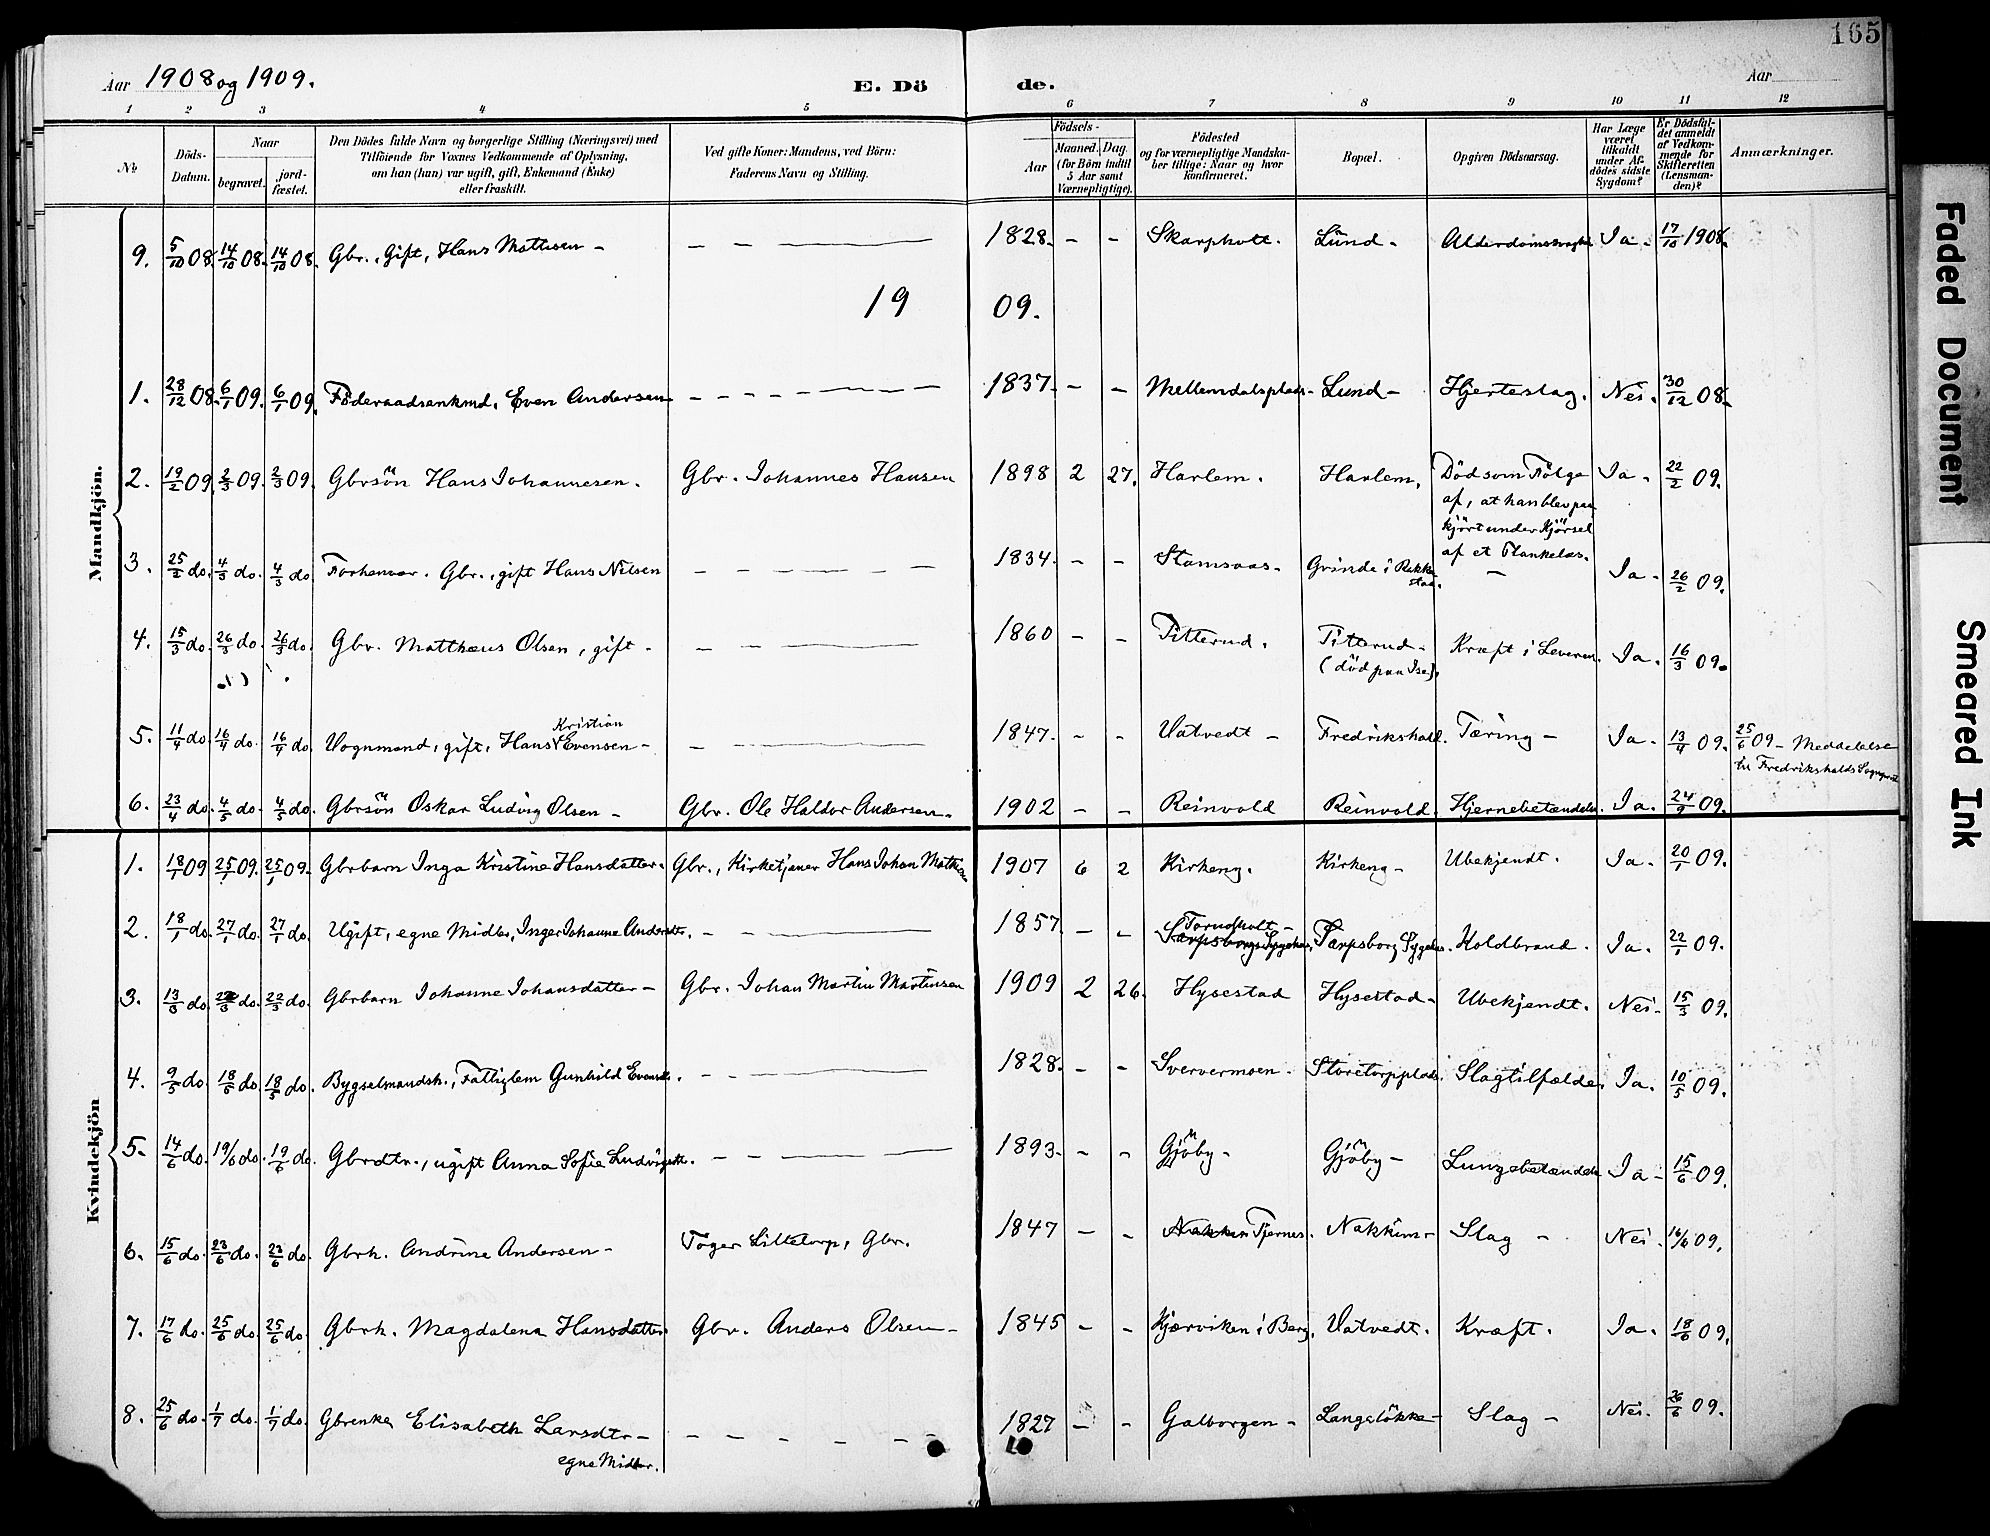 165
Aar 1908 og 1909. E. Dö de. Aar
1 2 3 4 5 6 7 8 9 10 11 12
No. Döds-Datum. Naar begravet. jord-fæstet. Den Dödes fulde Navn og borgerlige Stilling (Næringsvei) med Tilföiende for Voxnes Vedkommende af Oplysning, om han (hun) var ugift, gift, Enkemand (Enke) eller fraskilt. Ved gifte Koner: Mandens, ved Börn: Faderens Navn og Stilling. Födsels- Aar Maaned. Dag. (for Börn indtil 5 Aar samt Værnepligtige). Födested og for værnepligtige Mandskaber tillige: Naar og hvor konfirmeret. Bopæl. Opgiven Dödsaarsag. Har Læge været tilkaldt under Afdödes sidste Sygdom? Er Dödsfaldet anmeldt af Vedkommende for Skifteretten (Lensmanden)? Anmærkninger.
Mandkjön.
9. 5/10 08. 14/10 08. 14/10 08. Gbr., gift, Hans Mathisen - — — — 1828. - - Skarpholt. Lund - Alderdomssvaghed Ja - 17/10 1908.
19 09.
1. 28/12 08. 6/1 09. 6/1 09. Föderaadsenkmd. Even Andersen - - - - - 1837. - - Mellemdalsplads - Lund - Hjerteslag. Nei. 30/12 08.
2. 19/2 09. 2/3 09. 2/3 09. Gbrsön Hans Johannesen. Gbr. Johannes Hansen 1898 2 27. Harlem. Harlem. Död som Fölge Ja. 22/2 09.
af, at han blev paa
kjört under Kjörsel
af et Plankelæs.
3. 25/2 do. 4/3 do. 4/3 do. Forhenvær. Gbr., gift Hans Nilsen - - - - 1834. - - Stamsaas - Grinde i Rakkestad. - Ja - 26/2 09.
4. 15/3 do. 26/3 do. 26/3 do. Gbr. Matthæus Olsen, gift - - - — 1860 - - Titterud. Titterud - Kræft i Leveren. Ja. 16/3 09.
(död paa Ise).
5. 11/4 do. 16/4 do. 16/4 do. Vognmand, gift, Hans Kristian Evensen - - — 1847. - - Vatvedt - Fredrikshall. Tæring - Ja - 13/4 09. 25/6 09 - Meddelelse
til Fredrikshalds
6. 23/4 do. 4/5 do. 4/5 do. Gbrsön Oskar Ludvig Olsen - Gbr. Ole Haldor Andersen. 1902 - - Reinvold Reinvold. Hjernebetændelse. Ja. 24/9 09.
Kvindekjön
1. 18/1 09 25/1 09. 25/1 09. Gbrbarn Inga Kristine Hansdatter. Gbr., Kirketjener Hans Johan Mathisen 1907 6 2 Kirkeng. Kirkeng - Ubekjendt. Ja - 20/1 09.
2. 18/1 do. 27/1 do. 27/1 do. Ugift, egne Midler, Inger Johanne Andersdtr. - - — 1857. - - Tornsholt - Sarpsborgs Sygehus, Sarpsborg Sygehus. Koldbrand. Ja. 22/1 09.
3. 13/3 do. 22/3 do. 22/3 do. Gbrbarn Johanne Johansdatter - Gbr. Johan Martin Martinsen 1909 2 26. Hysestad Hysestad - Ubekjendt. Nei - 15/3 09.
4. 9/5 do. 18/5 do. 18/5 do. Bygselmandsk., Fattiglem Gunhild Evensdt. - - — 1828. - - Sververmoen - Storetorpplads. Slagtilfælde. Ja. 10/5 09.
5. 14/6 do. 19/6 do. 19/6 do. Gbrdtr., ugift Anna Sofie Ludvigsdt. - - — 1893. - - Gjöby - Gjöby - Lungebetændelse Ja - 15/6 09.
6. 15/6 do. 23/6 do. 23/6 do. Gbrk. Andrine Andersen - Toger Lilletorp, Gbr. 1847 - - Nakkim Tjernes. Nakkim - Slag - Nei. 16/6 09.
7. 17/6 do. 25/6 do. 25/6 do. Gbrk. Magdalena Hansdatter. Gbr. Anders Olsen - 1845 - - Kjærviken i Berg. Vatvedt. Kræft. Ja. 18/6 09.
8. 25/6 do. 1/7 do. 1/7 do. Gbrenke Elisabeth Larsdtr - - - - - - 1827 - - Galborgen - Langelökke - Slag - Nei. 26/6 09.
egne Midler.
Faded Document
Smeared Ink